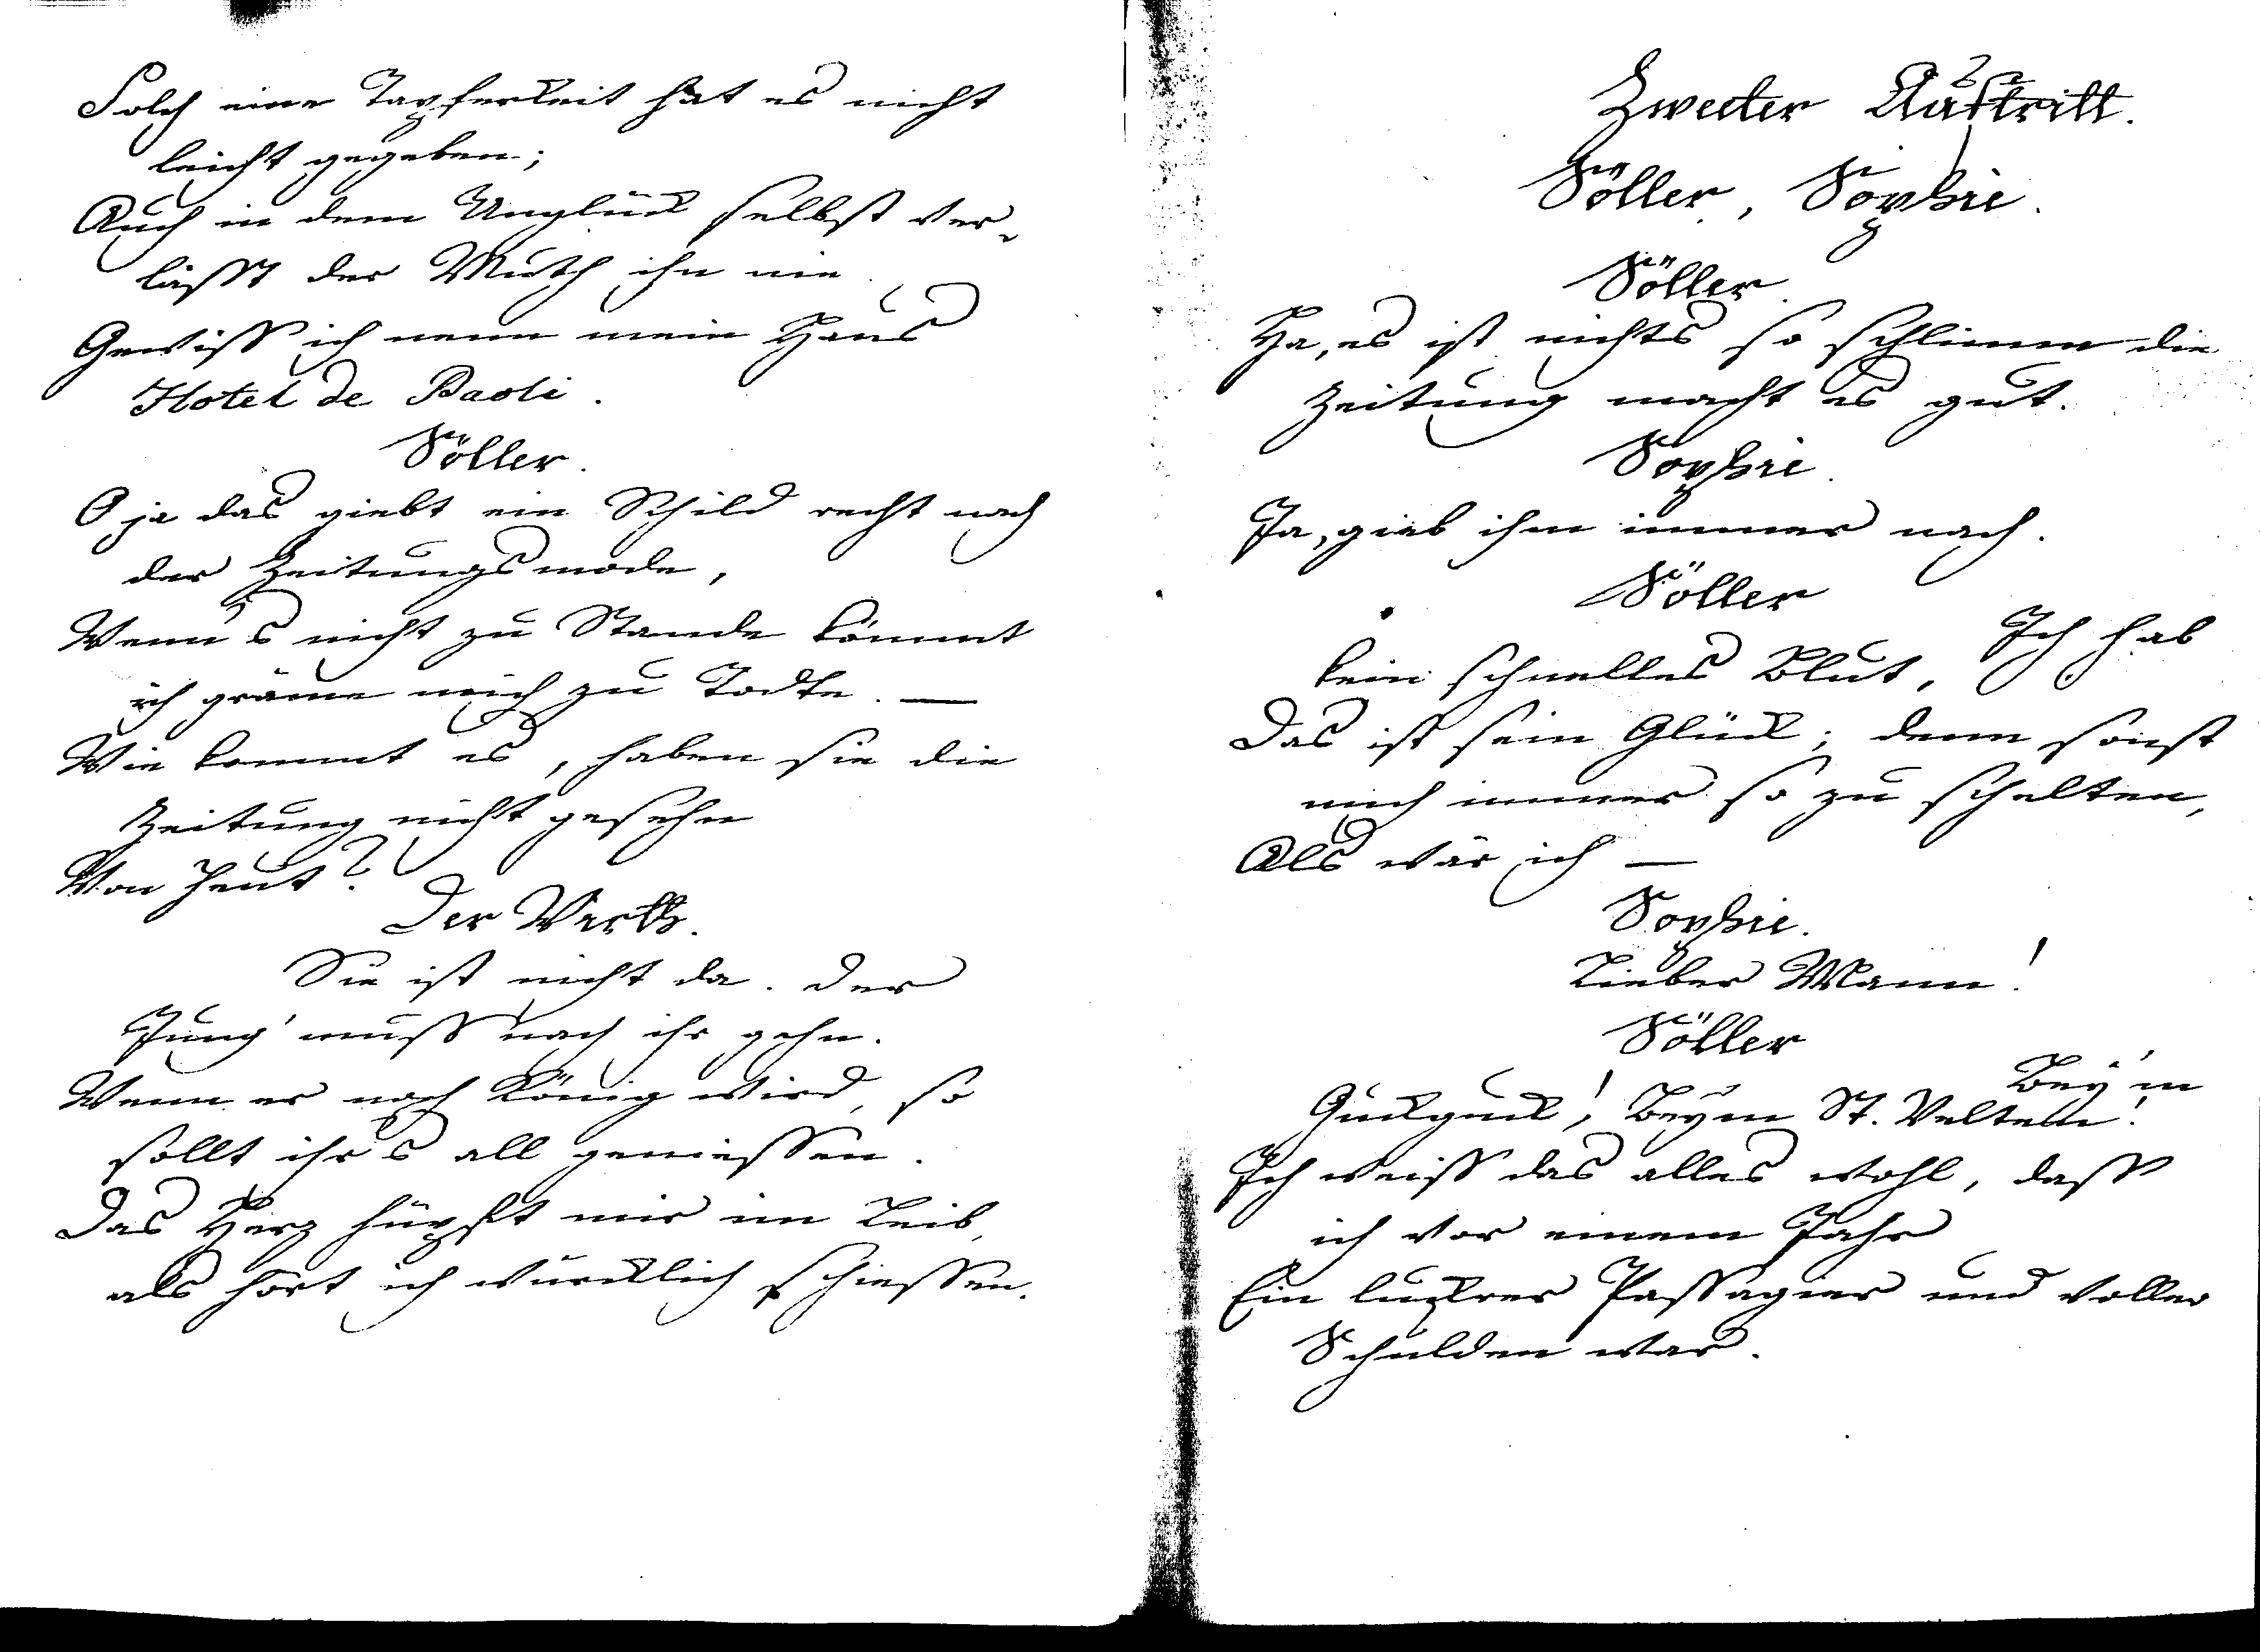 Solch eine Tapferkeit hat es nicht
leicht gegeben;
Auch in dem Unglück selbst ver-
lässt der Muth ihn nie.
Gewiss ich nenn mein Haus
Hotel de Paoli.
Söller.
O ja das giebt ein Schild recht nach
der Zeitungsmode,
Wenn's nicht zu Stande kömmt
ich gräme mich zu Todte. —
Wie kommt es, haben sie die
Zeitung nicht gesehn
Von heut?
Der Wirth.
Sie ist nicht da. Der
Jung' muss nach ihr gehn.
Wenn er noch König wird, so
sollt ihr's all geniessen.
Das Herz hüpft mir im Leib,
als hört ich würcklich schiessen.
Zweiter Auftritt.
Söller, Sophie.
Söller.
Ha, es ist nichts so schlimm die
Zeitung macht es gut.
Sophie.
Ja, gieb ihm immer nach.
Söller
Ich hab
kein schnelles Blut,
Das ist sein Glück; denn sonst
mich immer so zu schelten,
Als wär ich —
Sophie.
Lieber Mann!
Söller
Bey'm
Guckguck! Beym St. Velten!
Ich weiss das alles wohl, dass
ich vor einem Jahr
Ein luckrer Passagier und voller
Schulden war.